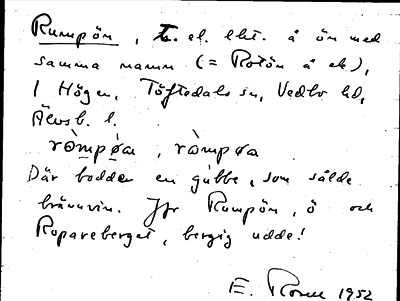 Rumpön, t. el. lht. å ön med
samma namn (= Rotön å ek),
1 Högen, Töftedals sn, Vedbo hd,
Älvsb. l.
ròmpøa, ròmpøa
Där bodde en gubbe, som sålde
brännvin. Jfr Rumpön, ö och
Ropareberget, bergig udde!
E. 1952